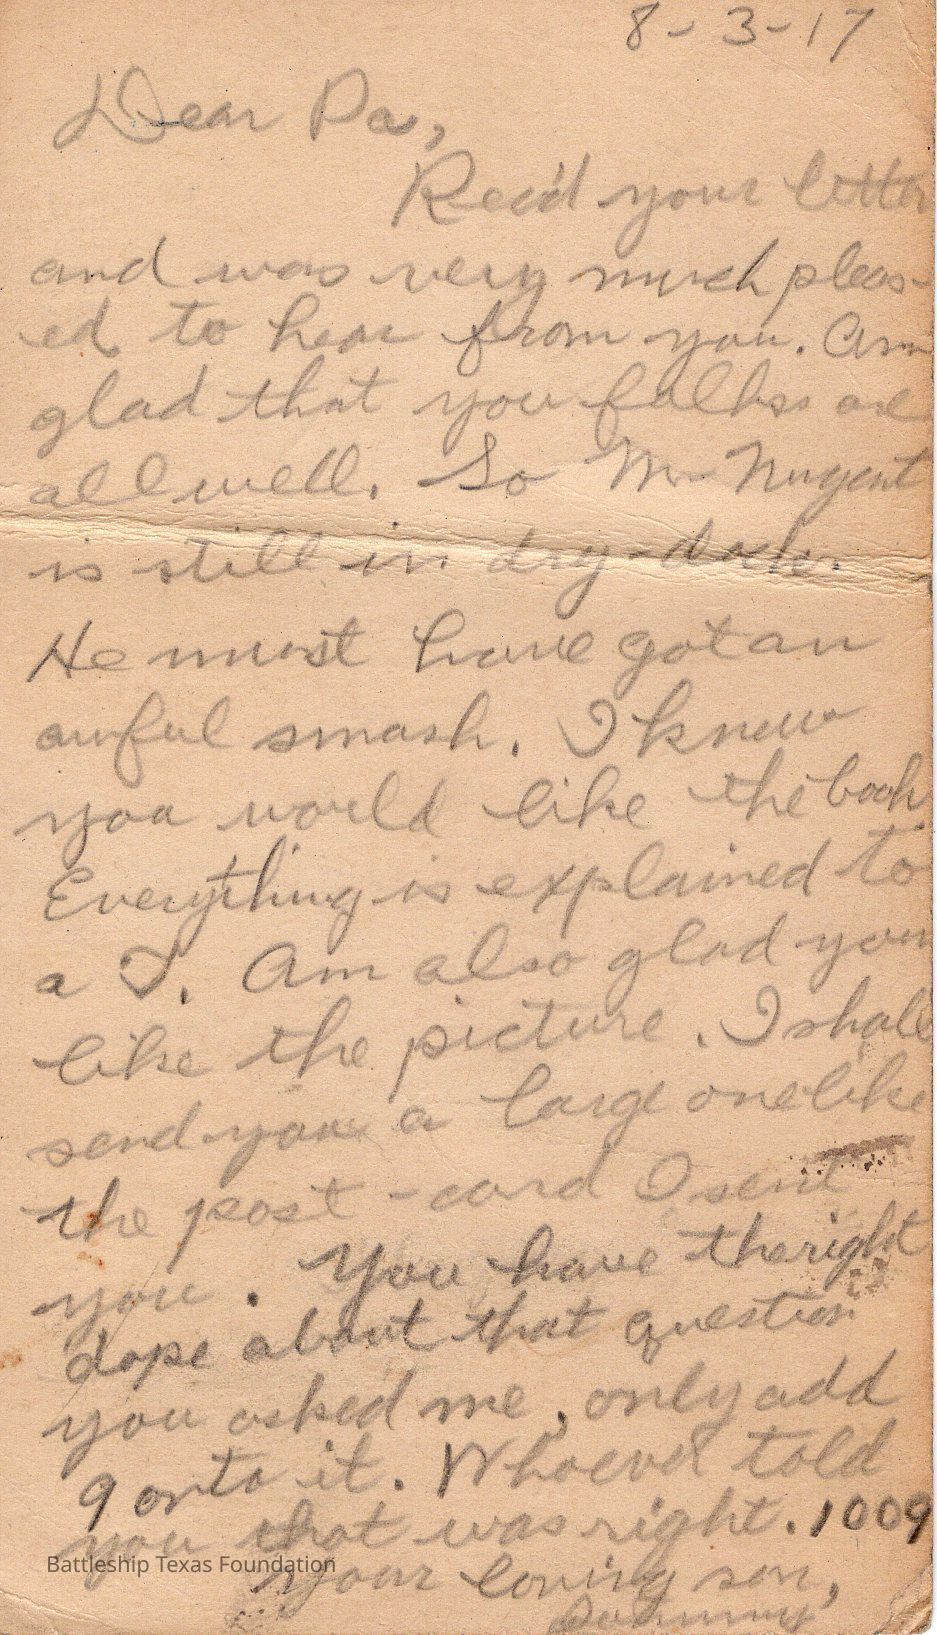 8-3-17
Dear Pa,
Rec'd your letter
and was very much pleas-
ed to hear from you. Am
glad that you folks are
all well. So Mr Nugent
is still in dry-dock.
He must have got an
awful smash. I knew
you would like the book
Everything is explained to
a T. Am also glad you
like the picture. I shall
send you a large one like
the post-card I sent
you. You have the right
dope about that question
you asked me, only add
9 onto it. Whoever told
you that was right. 1009
Battleship Texas Foundation
Your loving son,
Johnny